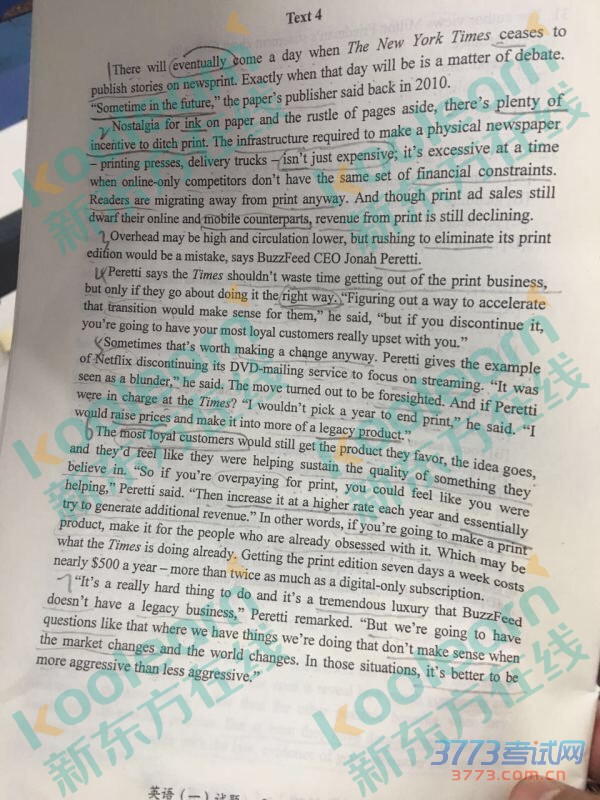 Text 4
There will eventually come a day when The New York Times ceases to
publish stories on newsprint. Exactly when that day will be is a matter of debate.
“Sometime in the future,” the paper's publisher said back in 2010.
Nostalgia for ink on paper and the rustle of pages aside, there's plenty of
incentive to ditch print. The infrastructure required to make a physical newspaper
– printing presses, delivery trucks – isn't just expensive; it's excessive at a time
when online-only competitors don't have the same set of financial constraints.
Readers are migrating away from print anyway. And though print ad sales still
dwarf their online and mobile counterparts, revenue from print is still declining.
Overhead may be high and circulation lower, but rushing to eliminate its print
edition would be a mistake, says BuzzFeed CEO Jonah Peretti.
Peretti says the Times shouldn't waste time getting out of the print business,
but only if they go about doing it the right way. “Figuring out a way to accelerate
that transition would make sense for them,” he said, “but if you discontinue it,
you're going to have your most loyal customers really upset with you.”
Sometimes that's worth making a change anyway. Peretti gives the example
of Netflix discontinuing its DVD-mailing service to focus on streaming. “It was
seen as a blunder,” he said. The move turned out to be foresighted. And if Peretti
were in charge at the Times? “I wouldn't pick a year to end print,” he said. “I
would raise prices and make it into more of a legacy product.”
The most loyal customers would still get the product they favor, the idea goes,
and they'd feel like they were helping sustain the quality of something they
believe in. “So if you're overpaying for print, you could feel like you were
helping,” Peretti said. “Then increase it at a higher rate each year and essentially
try to generate additional revenue.” In other words, if you're going to make a print
product, make it for the people who are already obsessed with it. Which may be
what the Times is doing already. Getting the print edition seven days a week costs
nearly $500 a year – more than twice as much as a digital-only subscription.
“It's a really hard thing to do and it's a tremendous luxury that BuzzFeed
doesn't have a legacy business,” Peretti remarked. “But we're going to have
questions like that where we have things we're doing that don't make sense when
the market changes and the world changes. In those situations, it's better to be
more aggressive than less aggressive.”
英语（一）试题
Koolearn
新东方在线
3773考试网
3773.com.cn